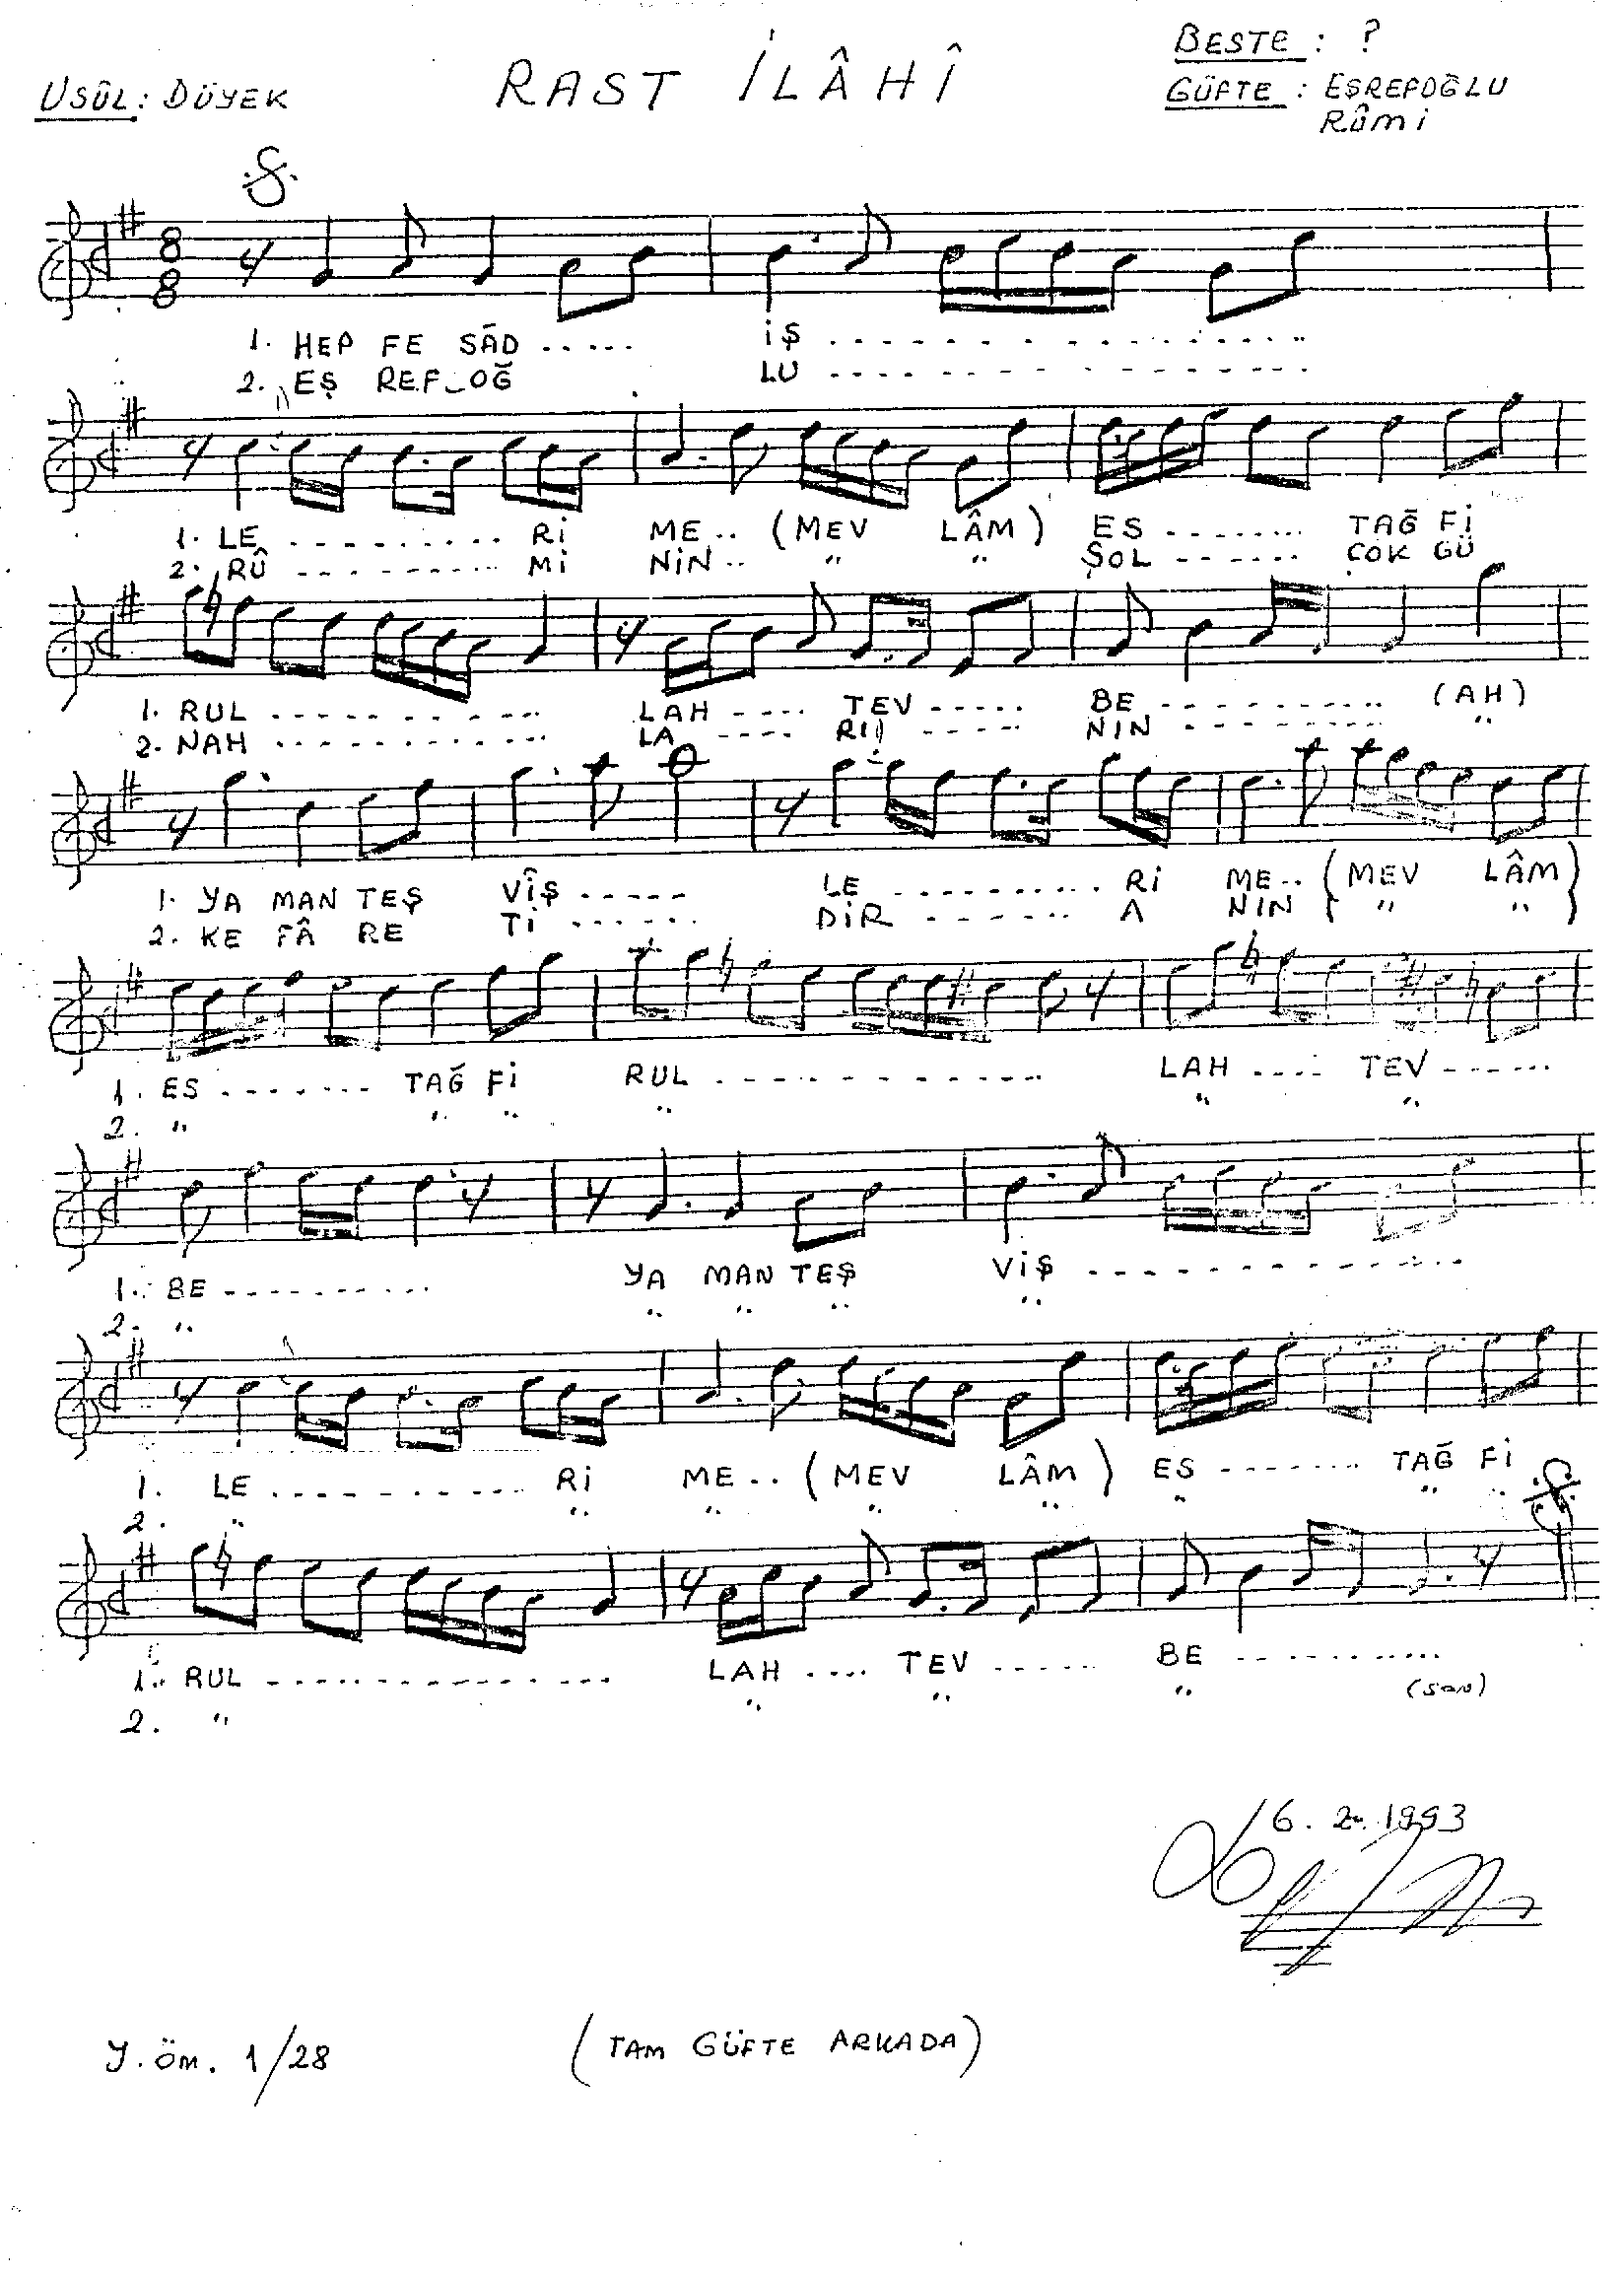 USÛL: DÜYEK
RAST İLÂHÎ
BESTE : ?
GÜFTE : EŞREFOĞLU
RÛMİ
8
8
1. HEP FE SÂD ..... İŞ ..............
2. EŞ REF_OĞ LU ..............
1. LE .......... Rİ ME.. (MEV LÂM) ES ........ TAĞ Fİ
2. RÛ .......... Mİ NİN.. " " ŞOL ....... ÇOK GÜ
1. RUL ............ LAH .... TEV ..... BE .......... (AH)
2. NAH ............ LA .... RI ..... NIN .......... "
1. YA MAN TEŞ VÎŞ ..... LE .......... Rİ ME.. (MEV LÂM)
2. KE FÂ RE Tİ ...... DİR ....... A NIN ( " " )
1. ES ....... TAĞ Fİ RUL .............. LAH .... TEV ......
2. " " " " " "
1. BE .......... YA MAN TEŞ VİŞ .............
2. " " " " "
1. LE .......... Rİ ME.. (MEV LÂM) ES ....... TAĞ Fİ
2. " " " " " " " "
1. RUL .............. LAH .... TEV ..... BE ..........
2. " " " " (SON)
16.2.1993
Y. ÖM. 1/28
(TAM GÜFTE ARKADA)